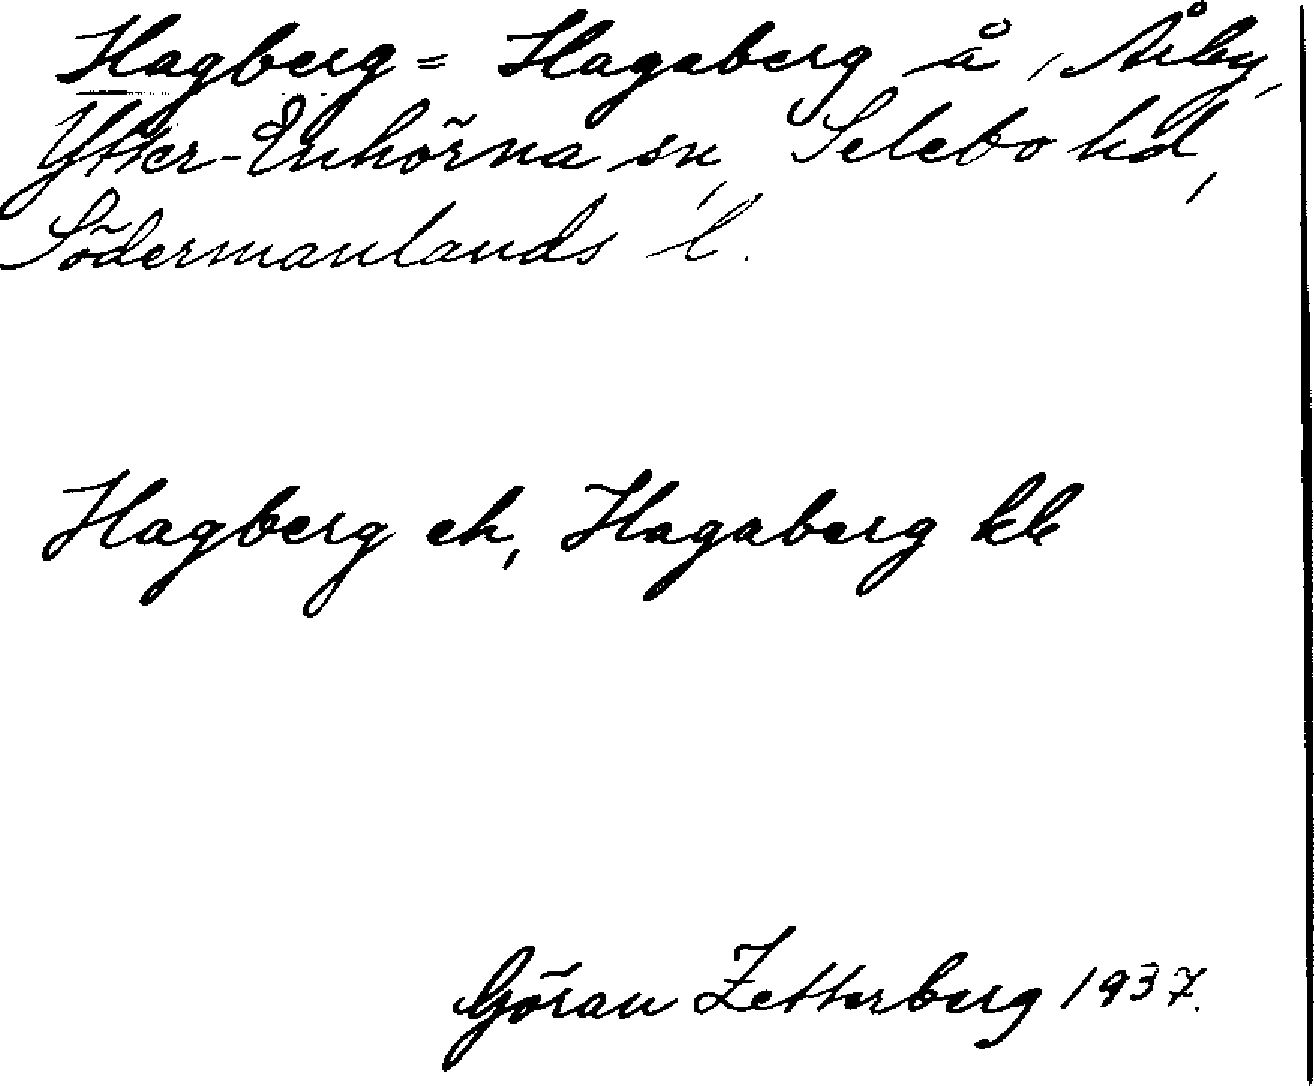 Hagberg = Hagaberg å, Årby,
Ytter-Enhörna sn, Selebo hd,
Södermanlands l.
Hagberg ek, Hagaberg kk
Göran Zetterberg 1937.